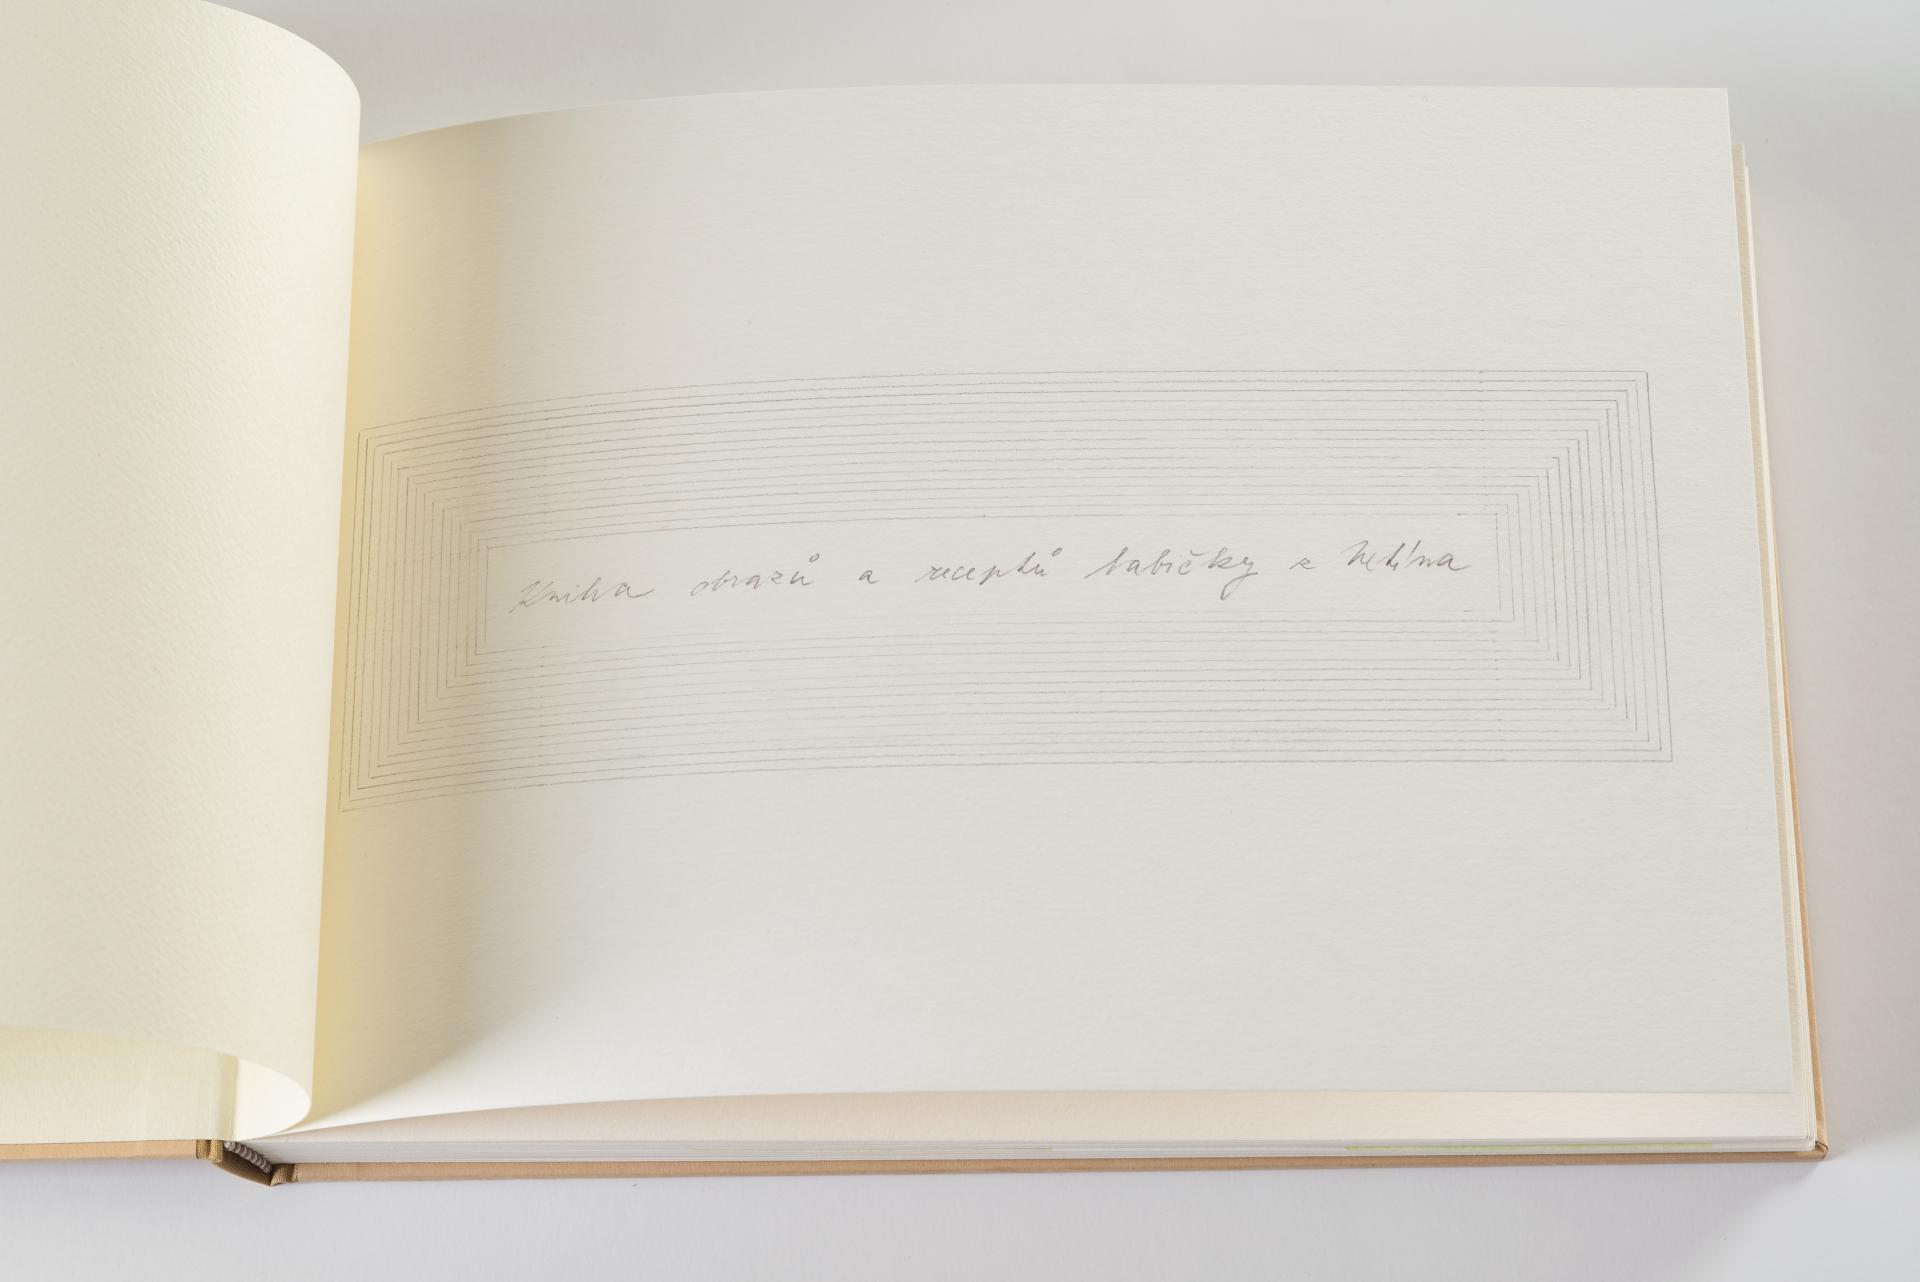 Kniha obrazů a receptů babičky z Netína